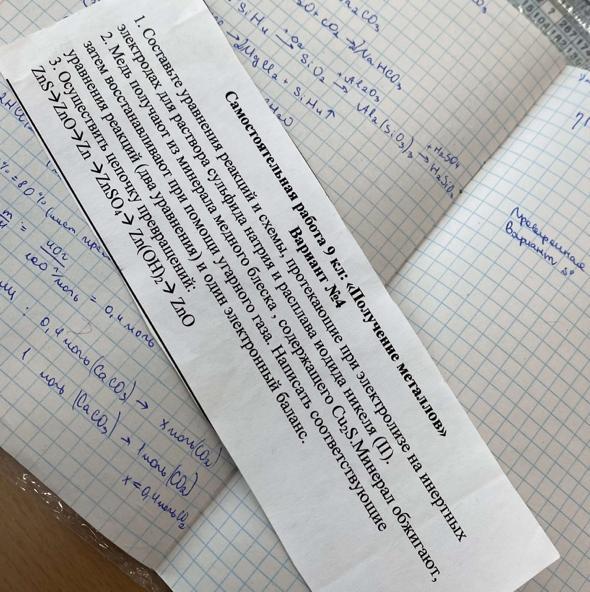 Самостоятельная работа 9 кл: «Получение металлов»
Вариант №4
1. Составьте уравнения реакций и схемы, протекающие при электролизе на инертных
электродах для раствора сульфида натрия и расплава иодида никеля (II).
2. Медь получают из минерала медного блеска, содержащего Cu₂S.Минерал обжигают,
затем восстанавливают при помощи угарного газа. Написать соответствующие
уравнения реакций (два уравнения) и один электронный баланс.
3. Осуществить цепочку превращений:
ZnS→ZnO→Zn→ZnSO₄→Zn(OH)₂→ZnO
→ NaHCO₃
SiH₄ +O₂→ SiO₂ +Al₂O₃→ Al₂(SiO₃)₃ +H₂SO₄→ H₂SiO₃
MgCl₂ + SiH₄↑
= 80%
= 0,4 моль
: 0,4 моль (CaCO₃) → x моль (CO₂)
1 моль (CaCO₃) → 1 моль (CO₂)
x = 0,4 моль CO₂
вариант 5